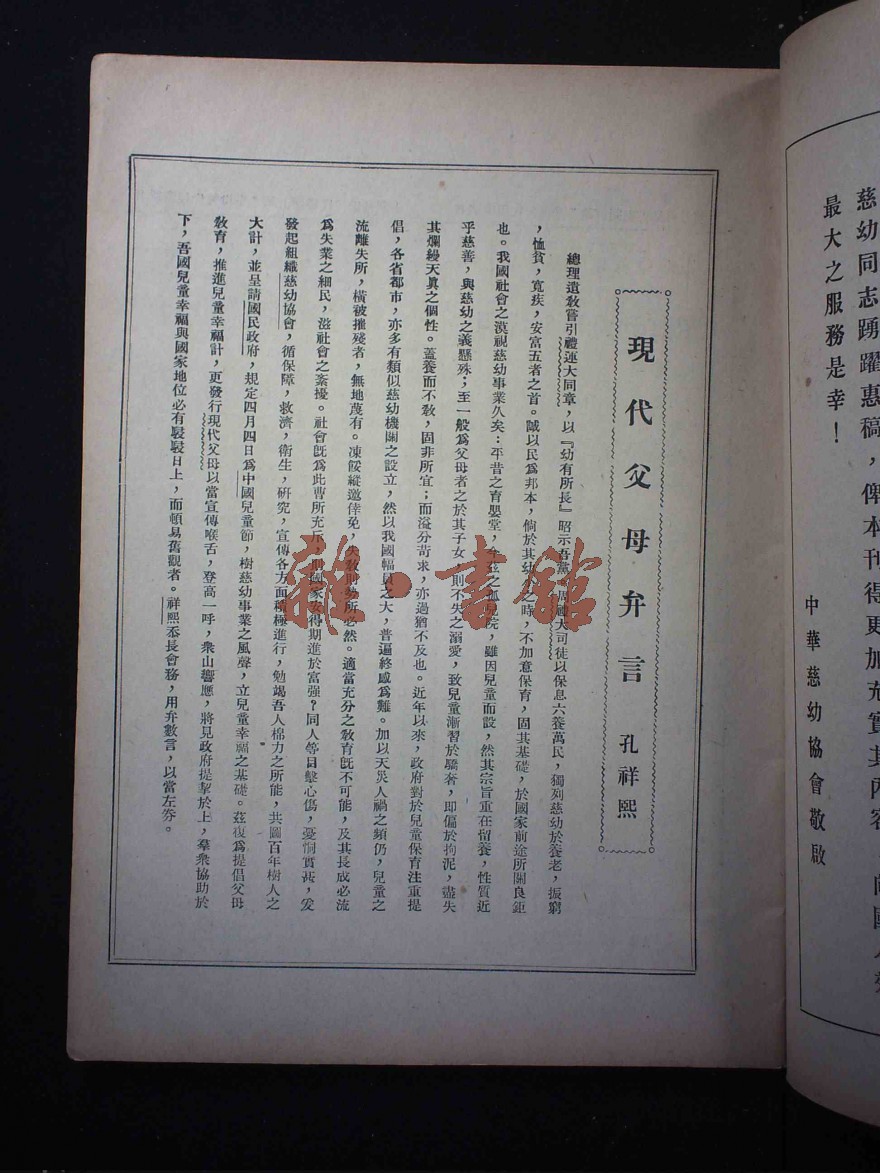 慈幼同志踴躍惠稿，俾本刊得更加充實其內容，
最大之服務是幸！
中華慈幼協會敬啟
現代父母弁言
孔祥熙
總理遺敎嘗引禮運大同章，以『幼有所長』昭示吾黨。周禮大司徒以保息六養萬民，獨列慈幼於養老，振窮
，恤貧，寬疾，安富五者之首。誠以民爲邦本，倘於其幼小之時，不加意保育，固其基礎，於國家前途所關良鉅
也。我國社會之漠視慈幼事業久矣：平昔之育嬰堂，今茲之孤兒院，雖因兒童而設，然其宗旨重在留養，性質近
乎慈善，與慈幼之義懸殊；至一般爲父母者之於其子女，則不失之溺愛，致兒童漸習於驕奢，即偏於拘泥，盡失
其爛縵天眞之個性。蓋養而不敎，固非所宜；而溢分苛求，亦過猶不及也。近年以來，政府對於兒童保育注重提
倡，各省都市，亦多有類似慈幼機關之設立，然以我國幅員之大，普遍終感爲難。加以天災人禍之頻仍，兒童之
流離失所，橫被摧殘者，無地蔑有。凍餒縱邀倖免，失敎則勢所必然。適當充分之敎育旣不可能，及其長成必流
爲失業之細民，滋社會之紊擾。社會旣爲此曹所充斥，則國家安得期進於富强？同人等目擊心傷，憂恫實甚，爰
發起組織慈幼協會，循保障，救濟，衛生，研究，宣傳各方面積極進行，勉竭吾人棉力之所能，共圖百年樹人之
大計，並呈請國民政府，規定四月四日爲中國兒童節，樹慈幼事業之風聲，立兒童幸福之基礎。茲復爲提倡父母
敎育，推進兒童幸福計，更發行現代父母以當宣傳喉舌，登高一呼，衆山響應，將見政府提挈於上，羣衆協助於
下，吾國兒童幸福與國家地位必有駸駸日上，而頓易舊觀者。祥熙忝長會務，用弁數言，以當左券。
雜·書館